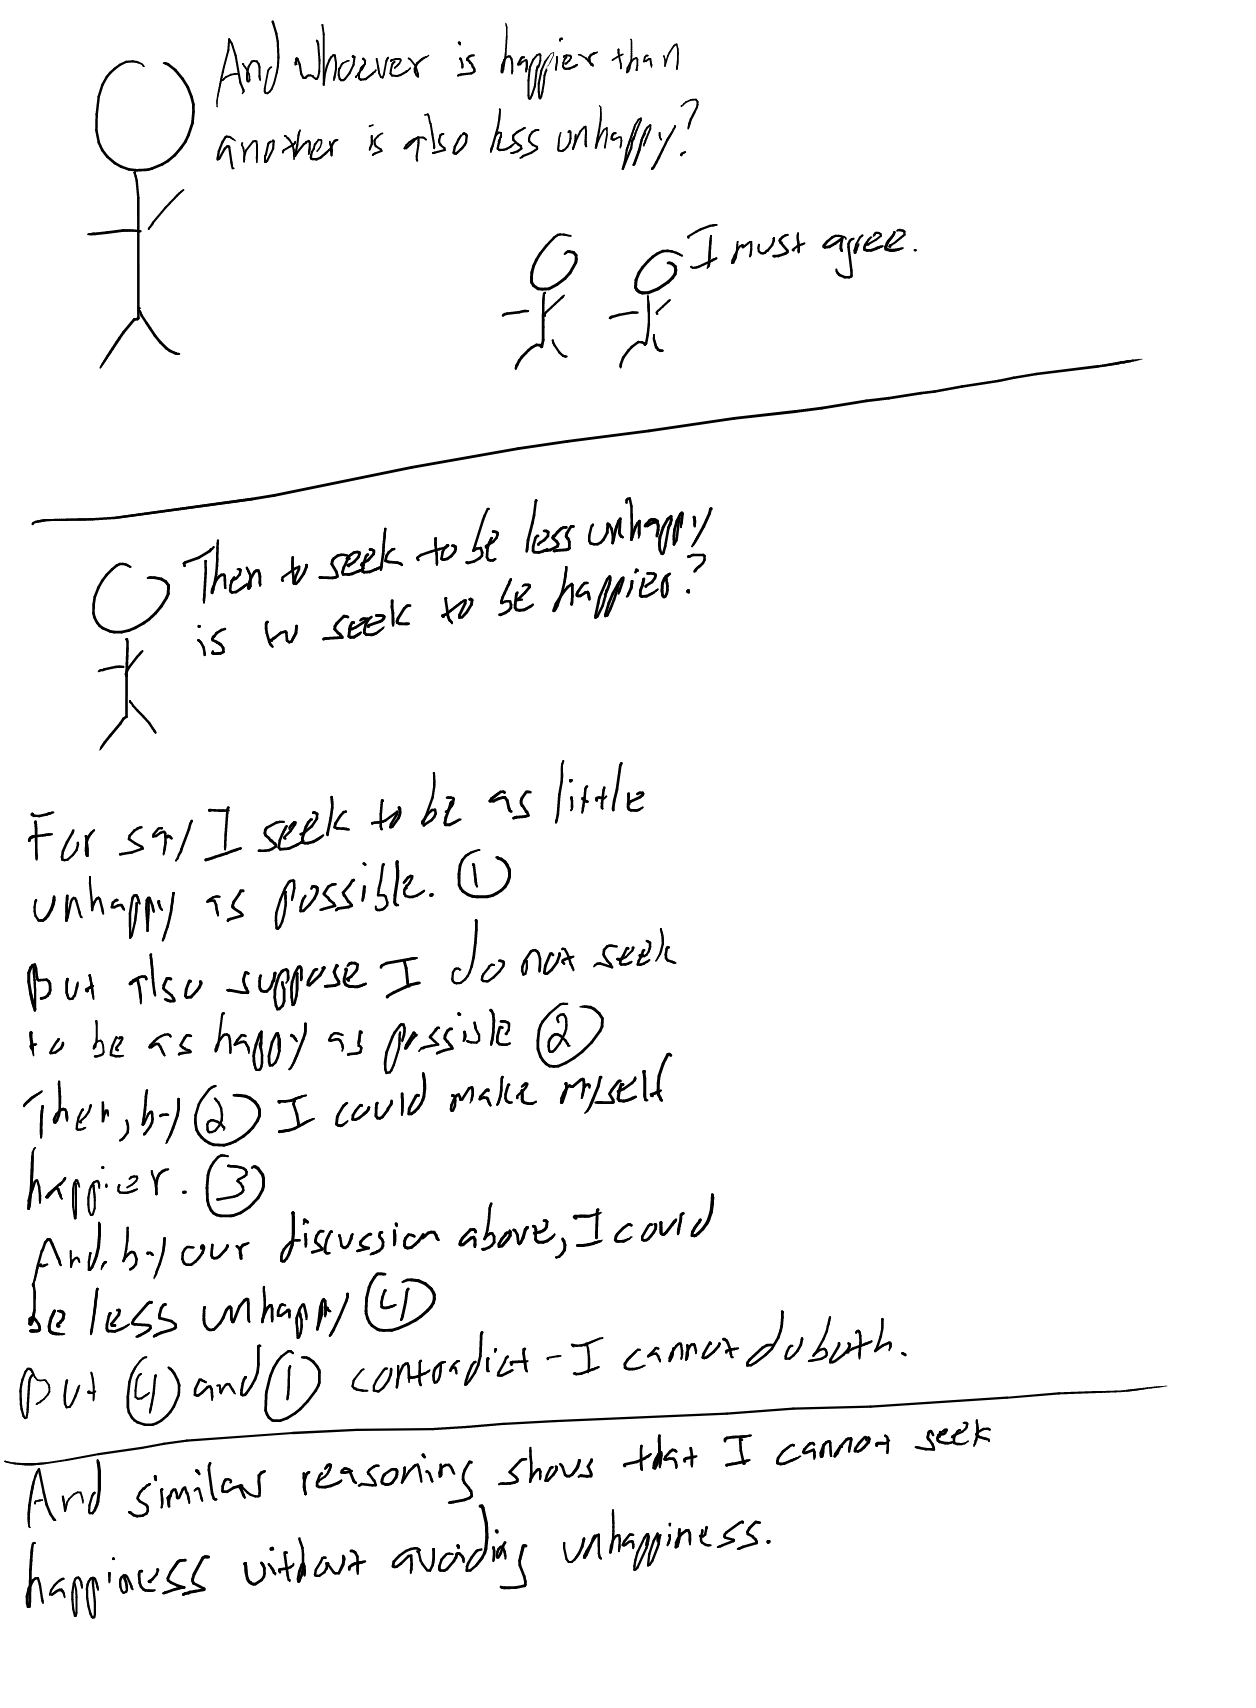 And whoever is happier than
another is also less unhappy?
I must agree.
Then to seek to be less unhappy
is to seek to be happier?
For say I seek to be as little
unhappy as possible. ①
But also suppose I do not seek
to be as happy as possible ②
Then, by ② I could make myself
happier. ③
And, by our discussion above, I could
be less unhappy ④
But ④ and ① contradict - I cannot do both.
And similar reasoning shows that I cannot seek
happiness without avoiding unhappiness.